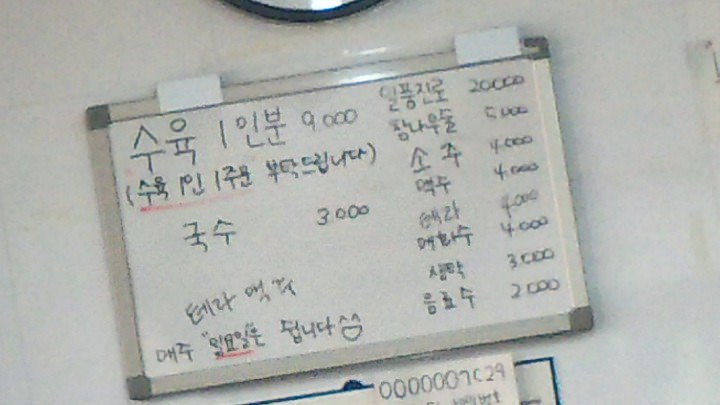 수육 1인분 9,000
(수육 1인 1주문 부탁드립니다)
국수 3,000
테라 맥주
매주 "일요일"은 쉽니다^^
일품진로 20,000
참나무통 5,000
소주 4,000
맥주 4,000
테라 4,000
매화수 4,000
생탁 3,000
음료수 2,000
0000007C29